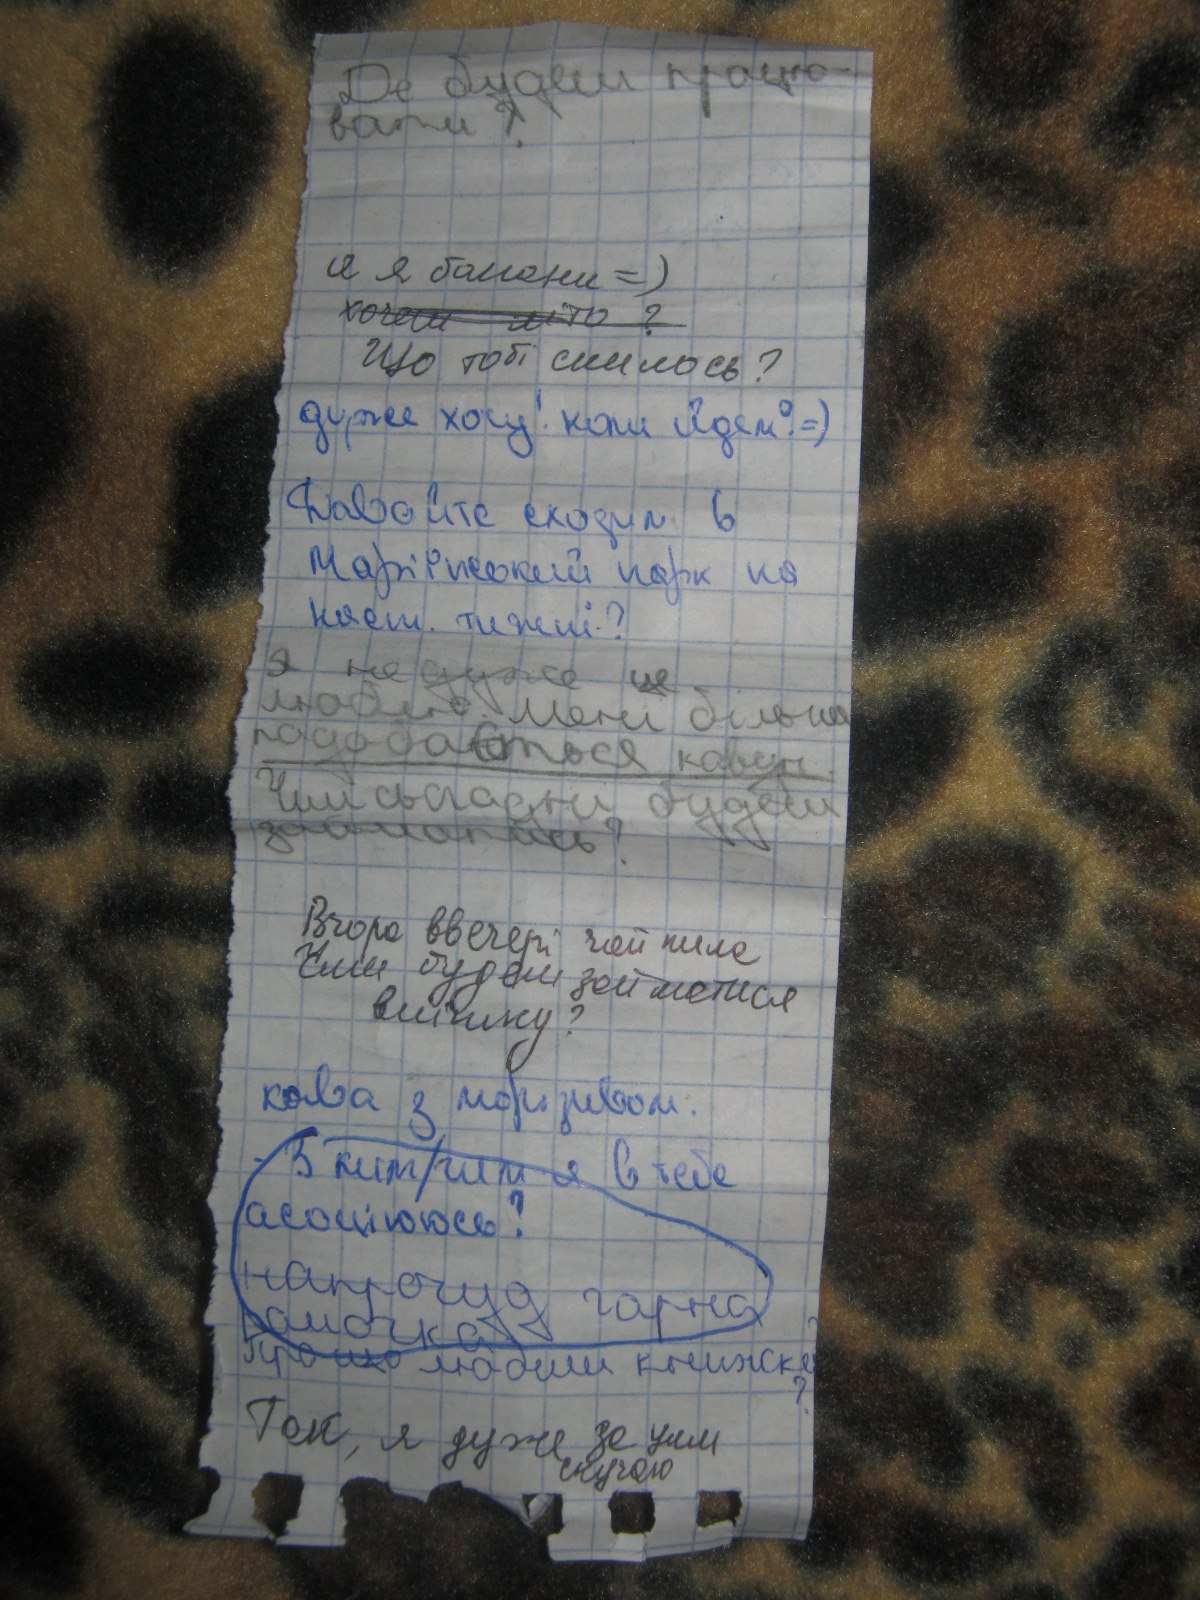 Де будеш працю-
вати?
я я банани =)
хочеш літо ?
Що тобі снилось?
дуже хочу! коли йдем?=)
Давайте сходим в
Маріїнський парк на
наст. тижні?
я не дуже це
люблю Мені більше
подобається кавун.
Чим сьогодні будеш
займатись?
Вчора ввечері чай пила
Чим будеш займатися
влітку?
кава з морозивом.
- З ким/чим я в тебе
асоціююсь?
напрочуд гарна
дамочка
Про що любиш книжки
?
Так, я дуже за цим
скучаю